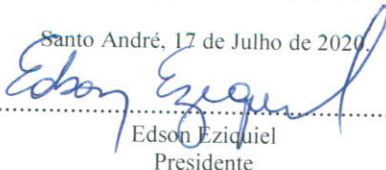 Santo André, 17 de Julho de 2020.
Edson Eziquiel
Edson Eziquiel
Presidente